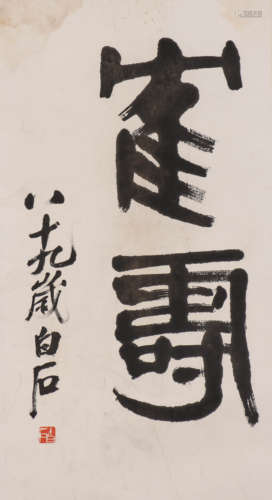 隺壽
八十九歲白石